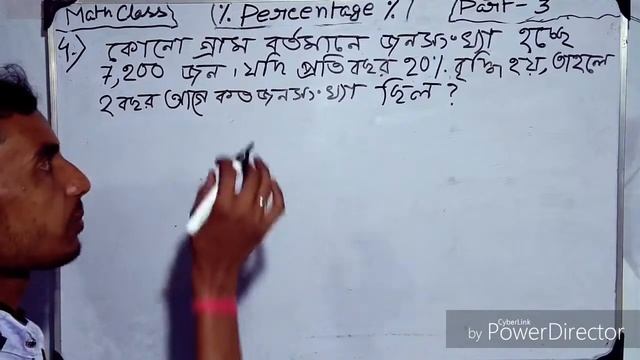 Math Class (% Percentage %) Part - 3
4.) কোনো গ্রাম বর্তমানে জনসংখ্যা হচ্ছে
7,200 জন। যদি প্রতি বছর 20% বৃদ্ধি হয়, তাহলে
২ বছর আগে কত জনসংখ্যা ছিল ?
CyberLink
by PowerDirector